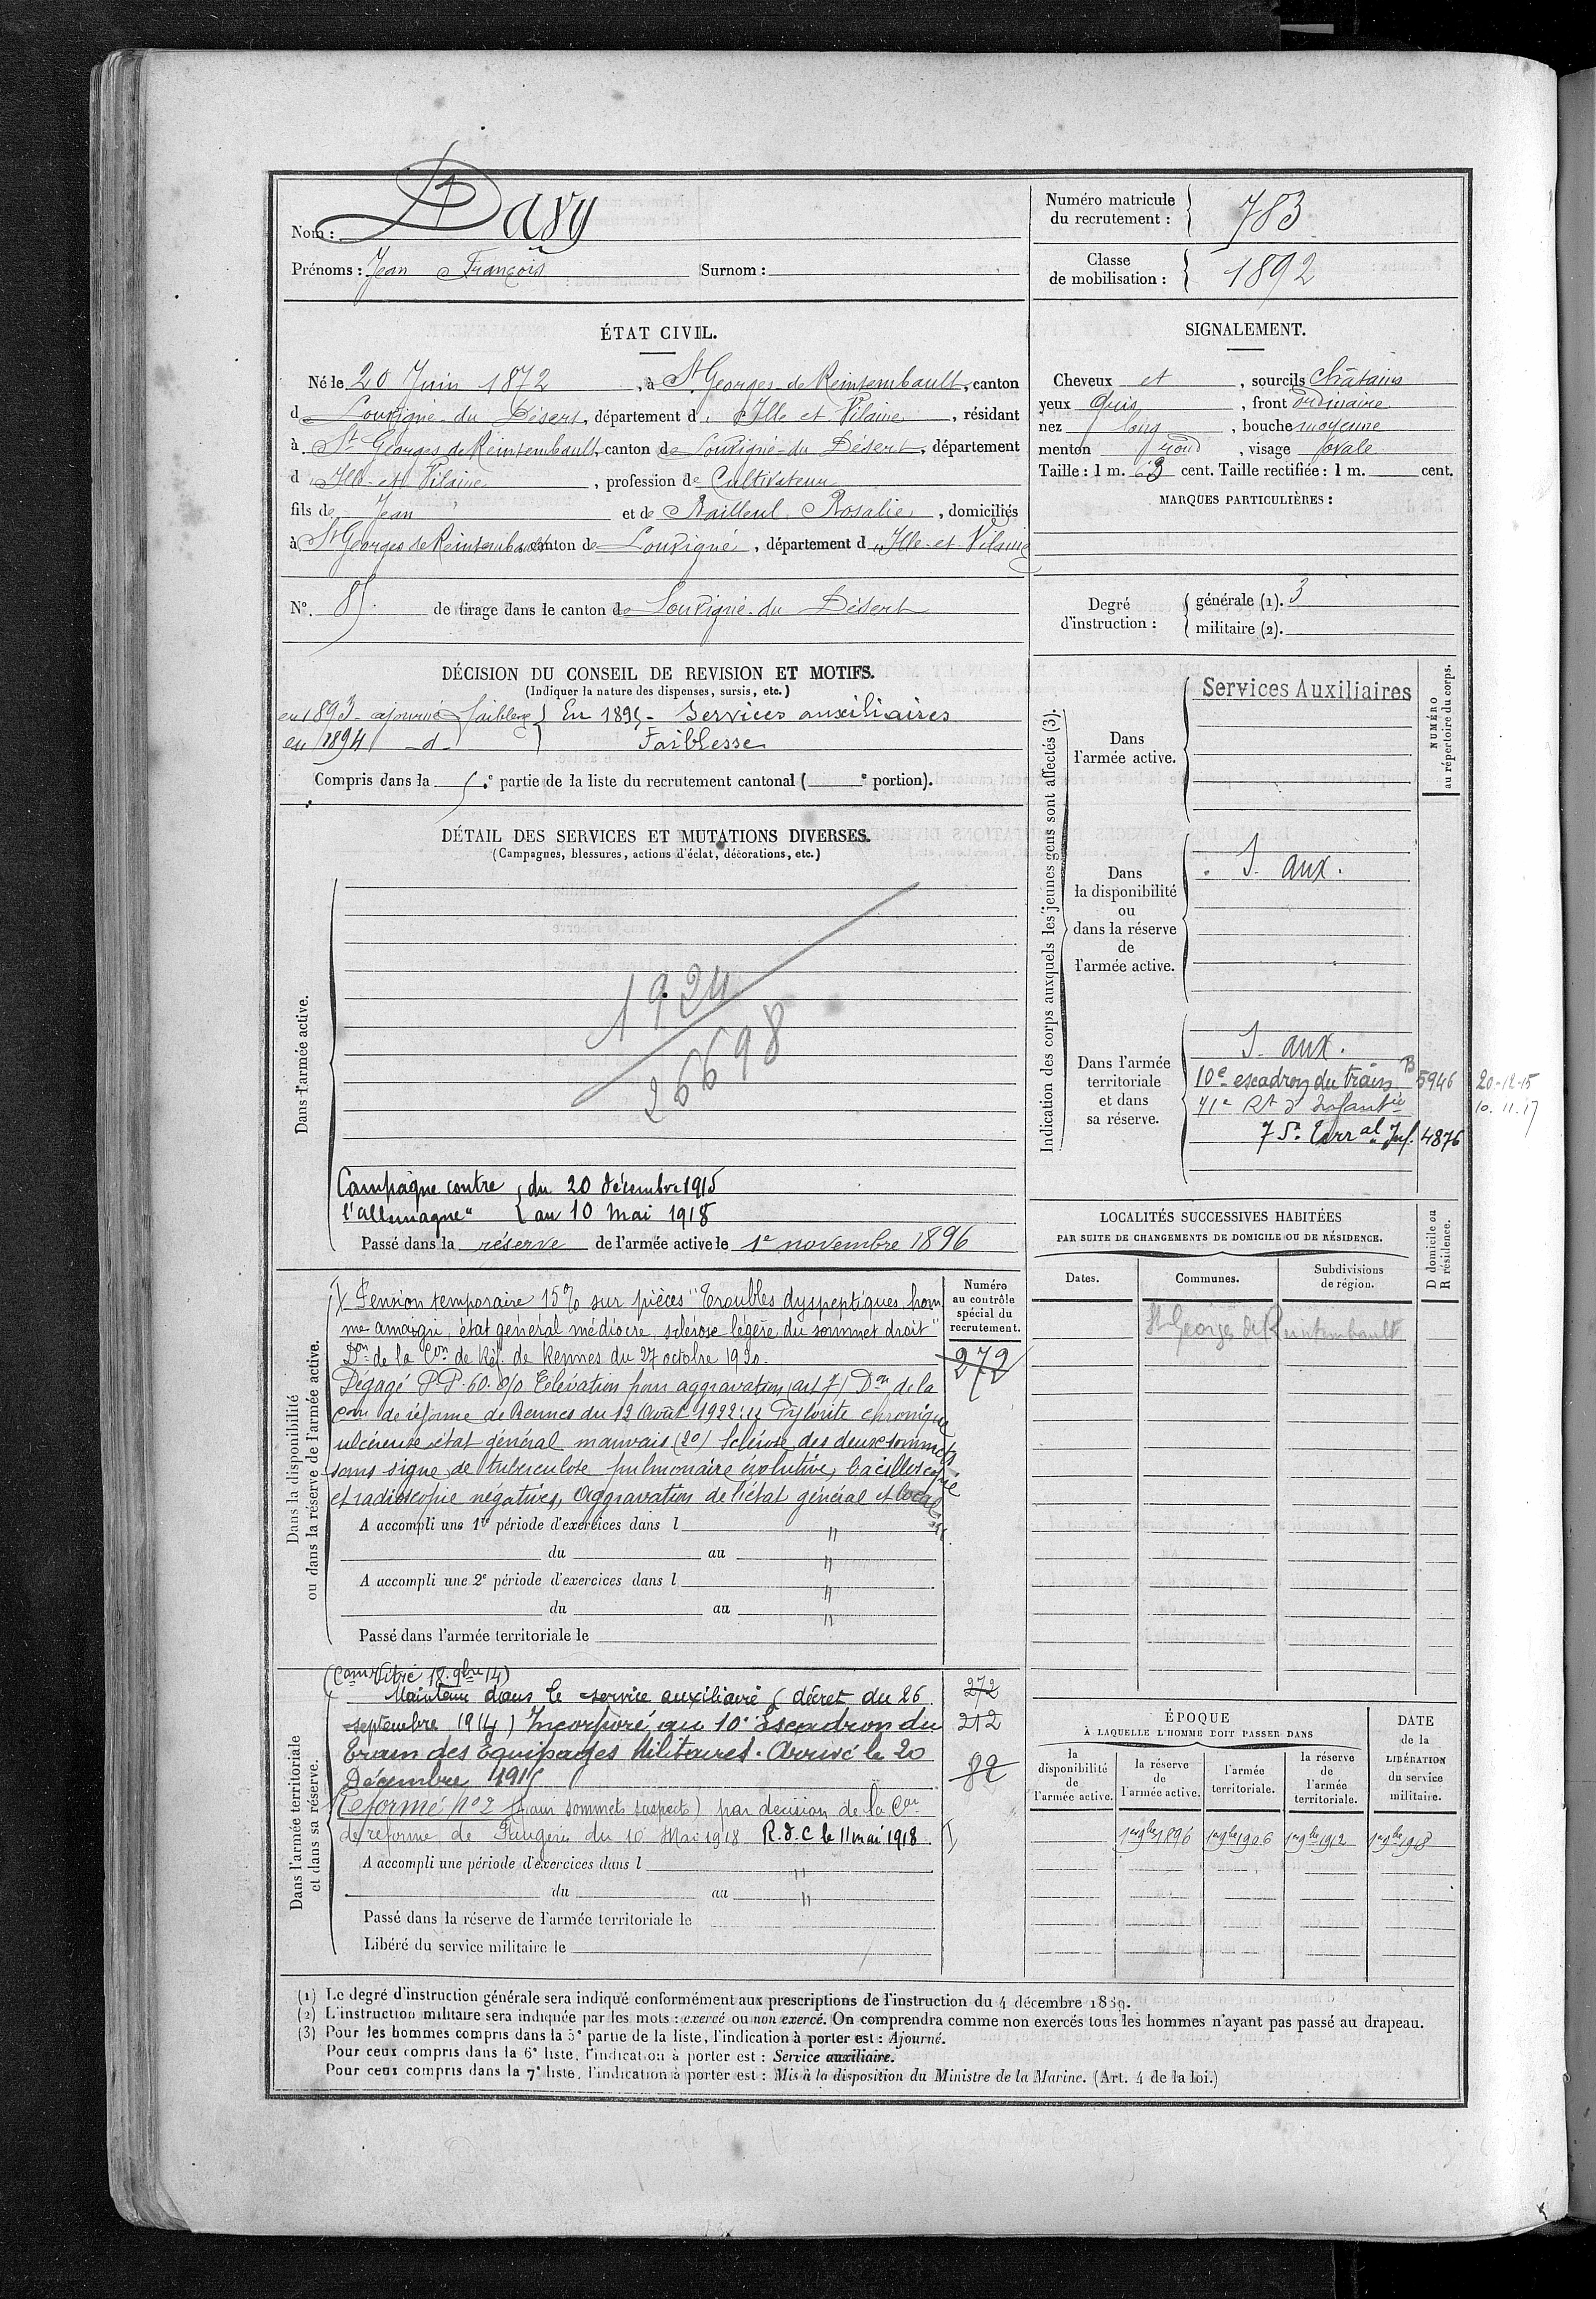 Nom : Davy
Prénoms : Jean François Surnom :
Numéro matricule du recrutement : 783
Classe de mobilisation : 1892
ÉTAT CIVIL.
Né le 20 Juin 1872, à St Georges-de-Reintembault, canton
d Louvigné-du-Désert, département d' Ille et Vilaine, résidant
à St Georges de Reintembault, canton de Louvigné-du-Désert, département
d' Ille-et-Vilaine, profession de Cultivateur
fils de Jean et de Railleul Rosalie, domiciliés
à St Georges de Reintembault canton de Louvigné, département d' Ille-et-Vilaine
N° 85 de tirage dans le canton de Louvigné-du Désert
SIGNALEMENT.
Cheveux et, sourcils Châtains
yeux Gris, front ordinaire
nez long, bouche moyenne
menton rond, visage ovale
Taille : 1 m. 63 cent. Taille rectifiée : 1 m. cent.
MARQUES PARTICULIÈRES :
Degré d'instruction : générale (1). 3
militaire (2).
DÉCISION DU CONSEIL DE REVISION ET MOTIFS.
(Indiquer la nature des dispenses, sursis, etc.)
en 1893 - ajourné faiblesse } En 1895 - Services auxiliaires
en 1894 - d - } Faiblesse
Compris dans la 5.e partie de la liste du recrutement cantonal ( e portion).
DÉTAIL DES SERVICES ET MUTATIONS DIVERSES.
(Campagnes, blessures, actions d'éclat, décorations, etc.)
Dans l'armée active.
1924
26698
Campagne contre { du 20 décembre 1915
l'Allemagne" { au 10 Mai 1918
Passé dans la réserve de l'armée active le 1e novembre 1896
Indication des corps auxquels les jeunes gens sont affectés (3).
NUMÉRO au répertoire du corps.
Dans l'armée active.
Services Auxiliaires
Dans la disponibilité ou dans la réserve de l'armée active.
S. aux.
Dans l'armée territoriale et dans sa réserve.
S. aux.
10e escadron du train B 5946 20-12-15
41e Rt d'Infantie 10.11.17
75e Terral Inf. 4876
LOCALITÉS SUCCESSIVES HABITÉES
PAR SUITE DE CHANGEMENTS DE DOMICILE OU DE RÉSIDENCE.
D domicile ou R résidence.
Dates. Communes. Subdivisions de région.
St Georges de Reintembault
Dans la disponibilité ou dans la réserve de l'armée active.
Numéro au contrôle spécial du recrutement.
272
Pension temporaire 15% sur pièces "Troubles dyspeptiques hom
me amaigri, état général médiocre, sclérose légère du sommet droit"
Don de la Con de Réf. de Rennes du 27 octobre 1920.
Dégagé P.P. 60. 0/0 Elévation pour aggravation (art 7) Don de la
Con de réforme de Rennes du 12 Août 1922: 1) Pylorite chronique
ulcéreuse état général mauvais (20) Sclérose des deux sommets
sans signe de tuberculose pulmonaire évolutive, bacilloscopie
et radioscopie négatives, aggravation de l'état général et local
A accompli une 1re période d'exercices dans l "
du au "
A accompli une 2e période d'exercices dans l "
du au "
Passé dans l'armée territoriale le
Dans l'armée territoriale et dans sa réserve.
(Con Vitré 18. 9bre 14)
Maintenu dans le service auxiliaire (décret du 26 272
septembre 1914) Incorporé au 10e Escadron du 212
Train des Equipages Militaires. Arrivé le 20 82
Décembre 1915
Réformé No 2 (aux sommets suspects) par décision de la Con
de réforme de Fougères du 10 Mai 1918 R.d.C le 11 mai 1918
A accompli une période d'exercices dans l "
du au "
Passé dans la réserve de l'armée territoriale le
Libéré du service militaire le
ÉPOQUE
À LAQUELLE L'HOMME DOIT PASSER DANS
DATE de la LIBÉRATION du service militaire.
la disponibilité de l'armée active. la réserve de l'armée active. l'armée territoriale. la réserve de l'armée territoriale.
1er 9bre 1896 1er 9bre 1906 1er 9bre 1912 1er 9bre 1918
(1) Le degré d'instruction générale sera indiqué conformément aux prescriptions de l'instruction du 4 décembre 1889.
(2) L'instruction militaire sera indiquée par les mots : exercé ou non exercé. On comprendra comme non exercés tous les hommes n'ayant pas passé au drapeau.
(3) Pour les hommes compris dans la 5e partie de la liste, l'indication à porter est : Ajourné.
Pour ceux compris dans la 6e liste, l'indication à porter est : Service auxiliaire.
Pour ceux compris dans la 7e liste, l'indication à porter est : Mis à la disposition du Ministre de la Marine. (Art. 4 de la loi.)